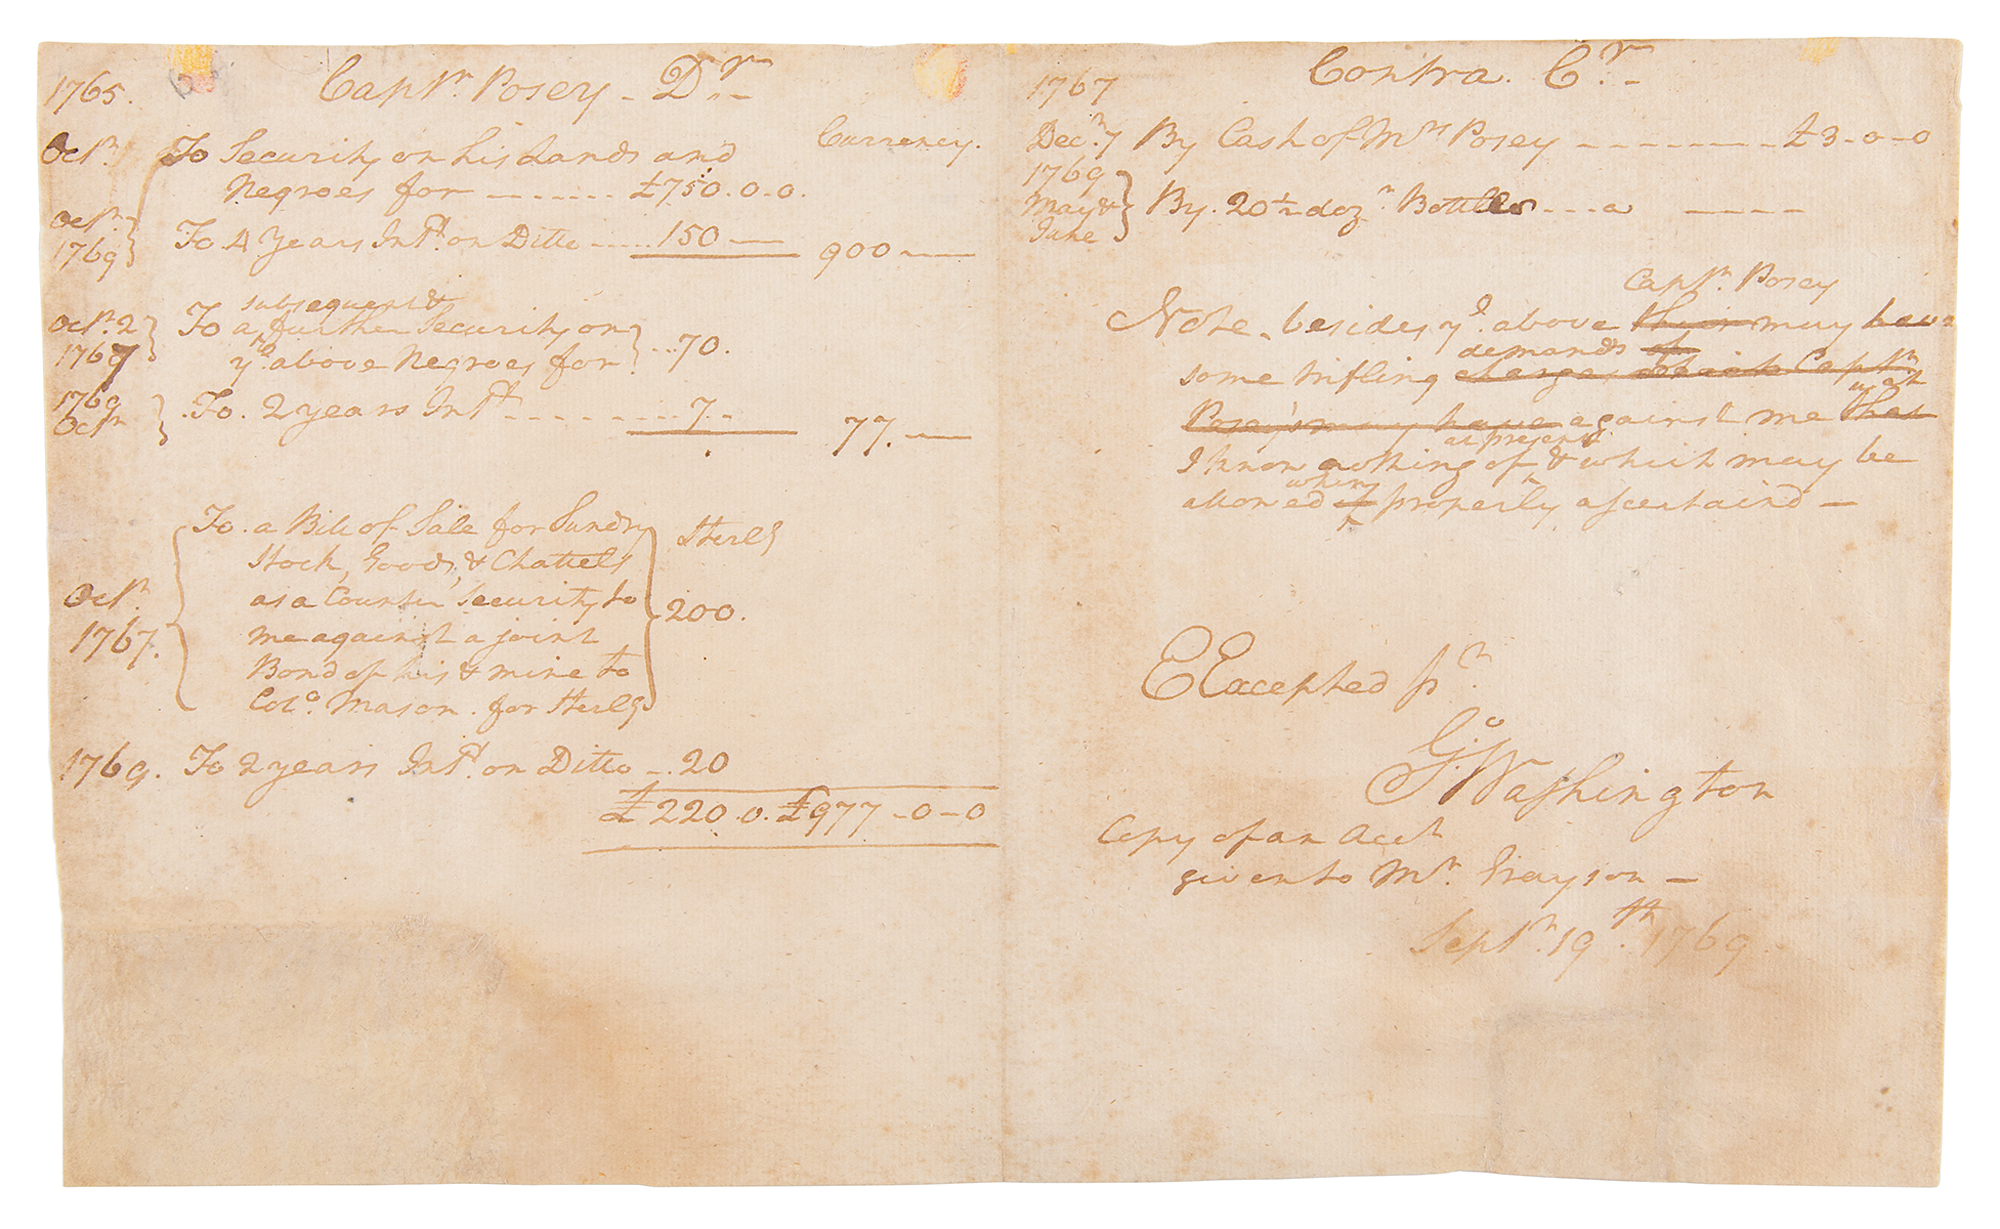 1765. Captn. Posey - Dr.-
Currency.
Octr. To Security on his Lands and
Negroes for - - - - - - - £750.0.0.
Octr. 1769 To 4 Years Intt. on Ditto - - - - 150 — 900 —
subsequent &
Octr. 2 To a further Security on
1767 ye. above Negroes for ... 70.
1769 Octr .To. 2 years Intt - - - - - - - - 7.- 77. —
To. a Bill of Sale for Sundry Sterlg
Stock, Goods, & Chattels
Octr. as a Counter Security to 200.
1767. me against a joint
Bond of his & mine to
Colo. Mason. for Sterlg
1769. To 2 years Intt. on Ditto -. 20
£220.0. £977-0-0
1767 Contra. Cr.-
Decr. 7 By Cash of Mrs Posey - - - - - - - - £3-0-0
1769
May & By. 20 1/2 dozn Bottles - - - a - - - -
June
Captn. Posey
Note. besides ye. above their may have
demands of
some trifling charges which Captn
wch
Posey's may have against me that
at present
I know nothing of, & which may be
when
allowed if properly ascertaind —
EExcepted pr.
Go. Washington
Copy of an Acct
given to Mr. Grayson —
Septr. 19th. 1769